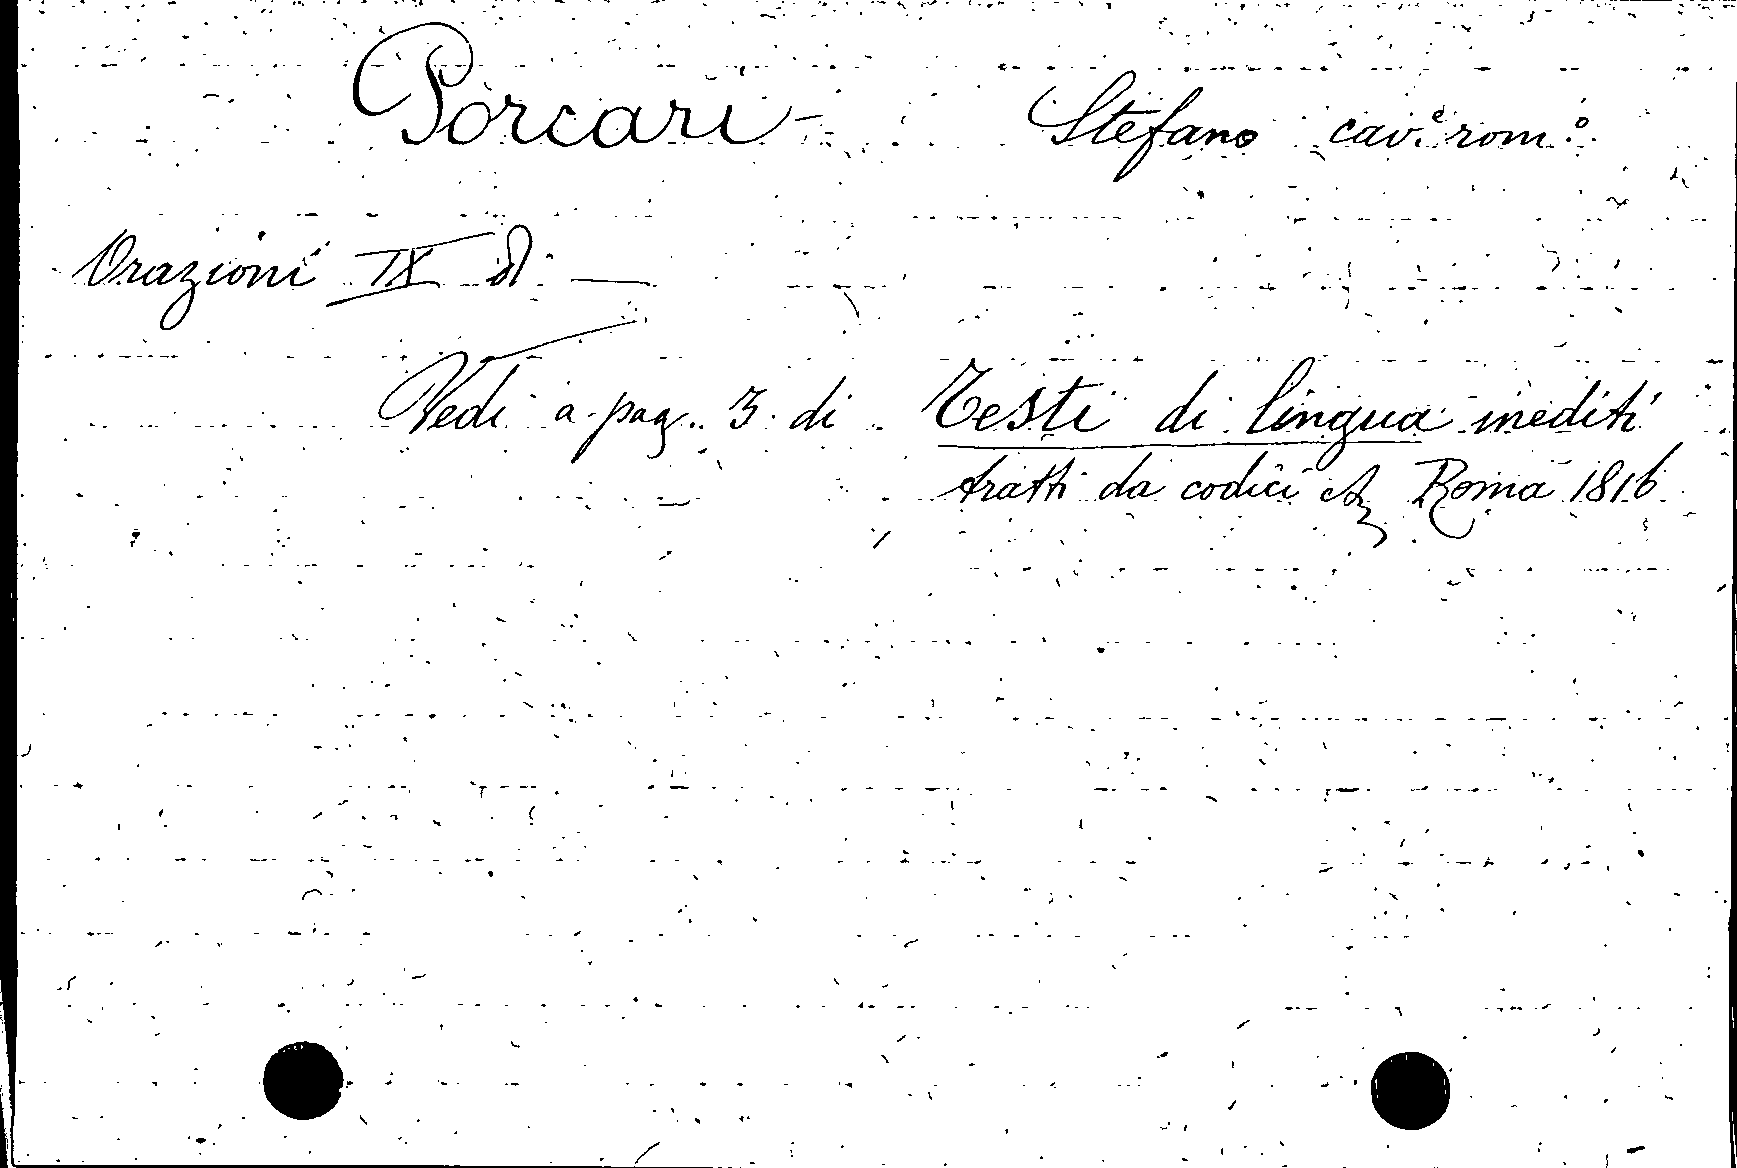 Porcari - Stefano cav.e rom.o
Orazioni IX di —
Vedi a pag. 3 di Testi di lingua inediti
tratti da codici etc Roma 1816